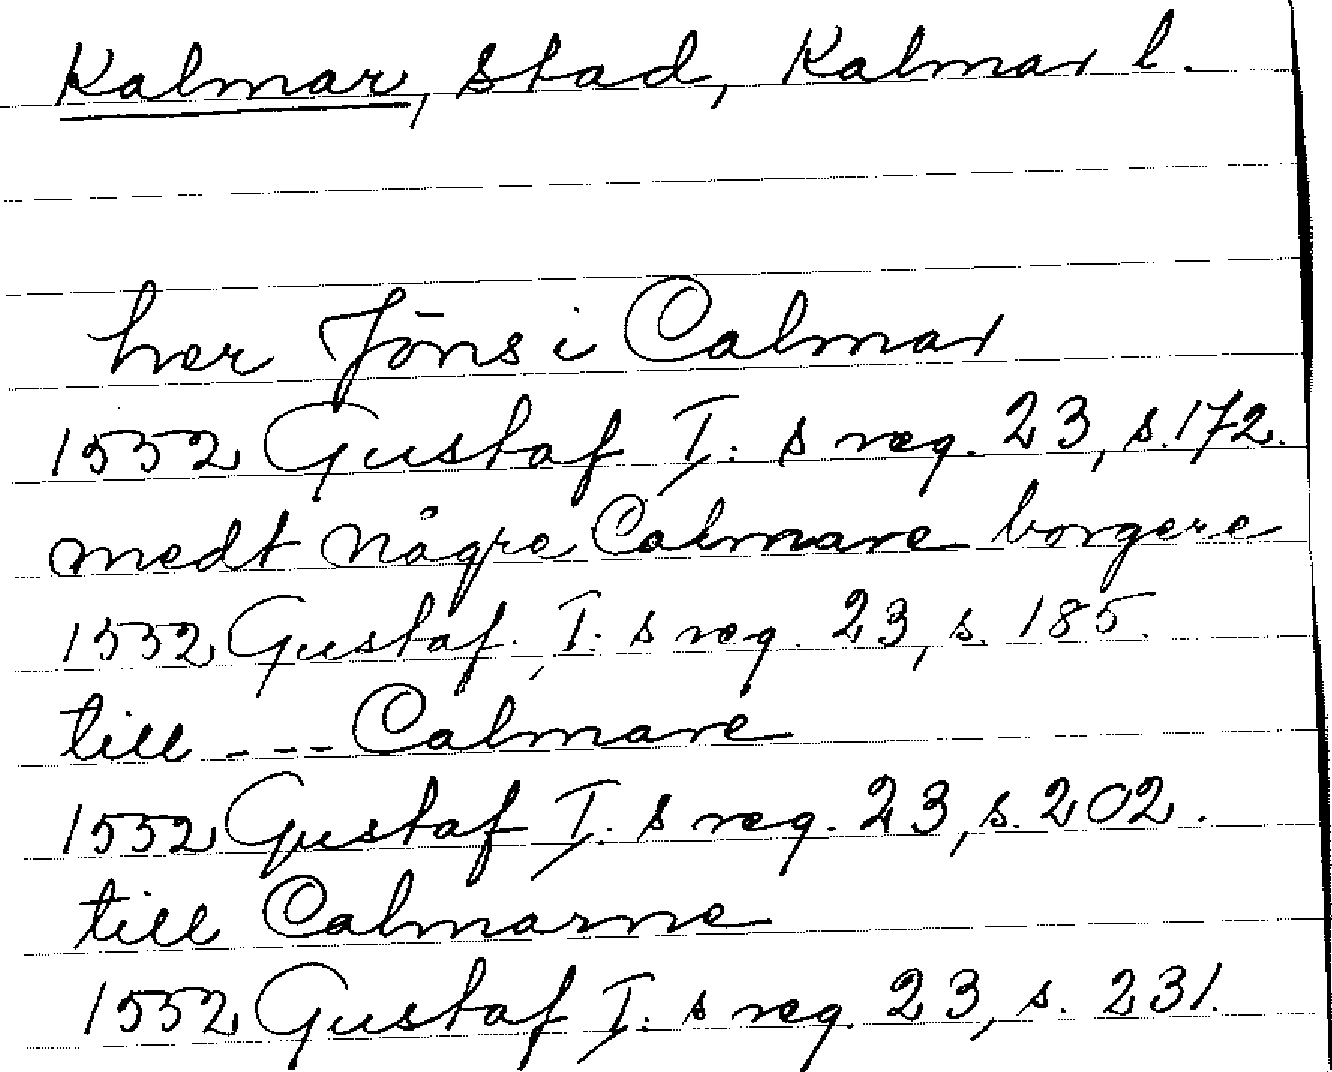 Kalmar, stad, Kalmar l.
her Jöns i Calmar
1552 Gustaf I:s reg. 23, s. 172.
medt någre Calmare borgere
1552 Gustaf I:s reg. 23, s. 185.
till --- Calmare
1552 Gustaf I:s reg. 23, s. 202.
till Calmarne
1552 Gustaf I:s reg. 23, s. 231.